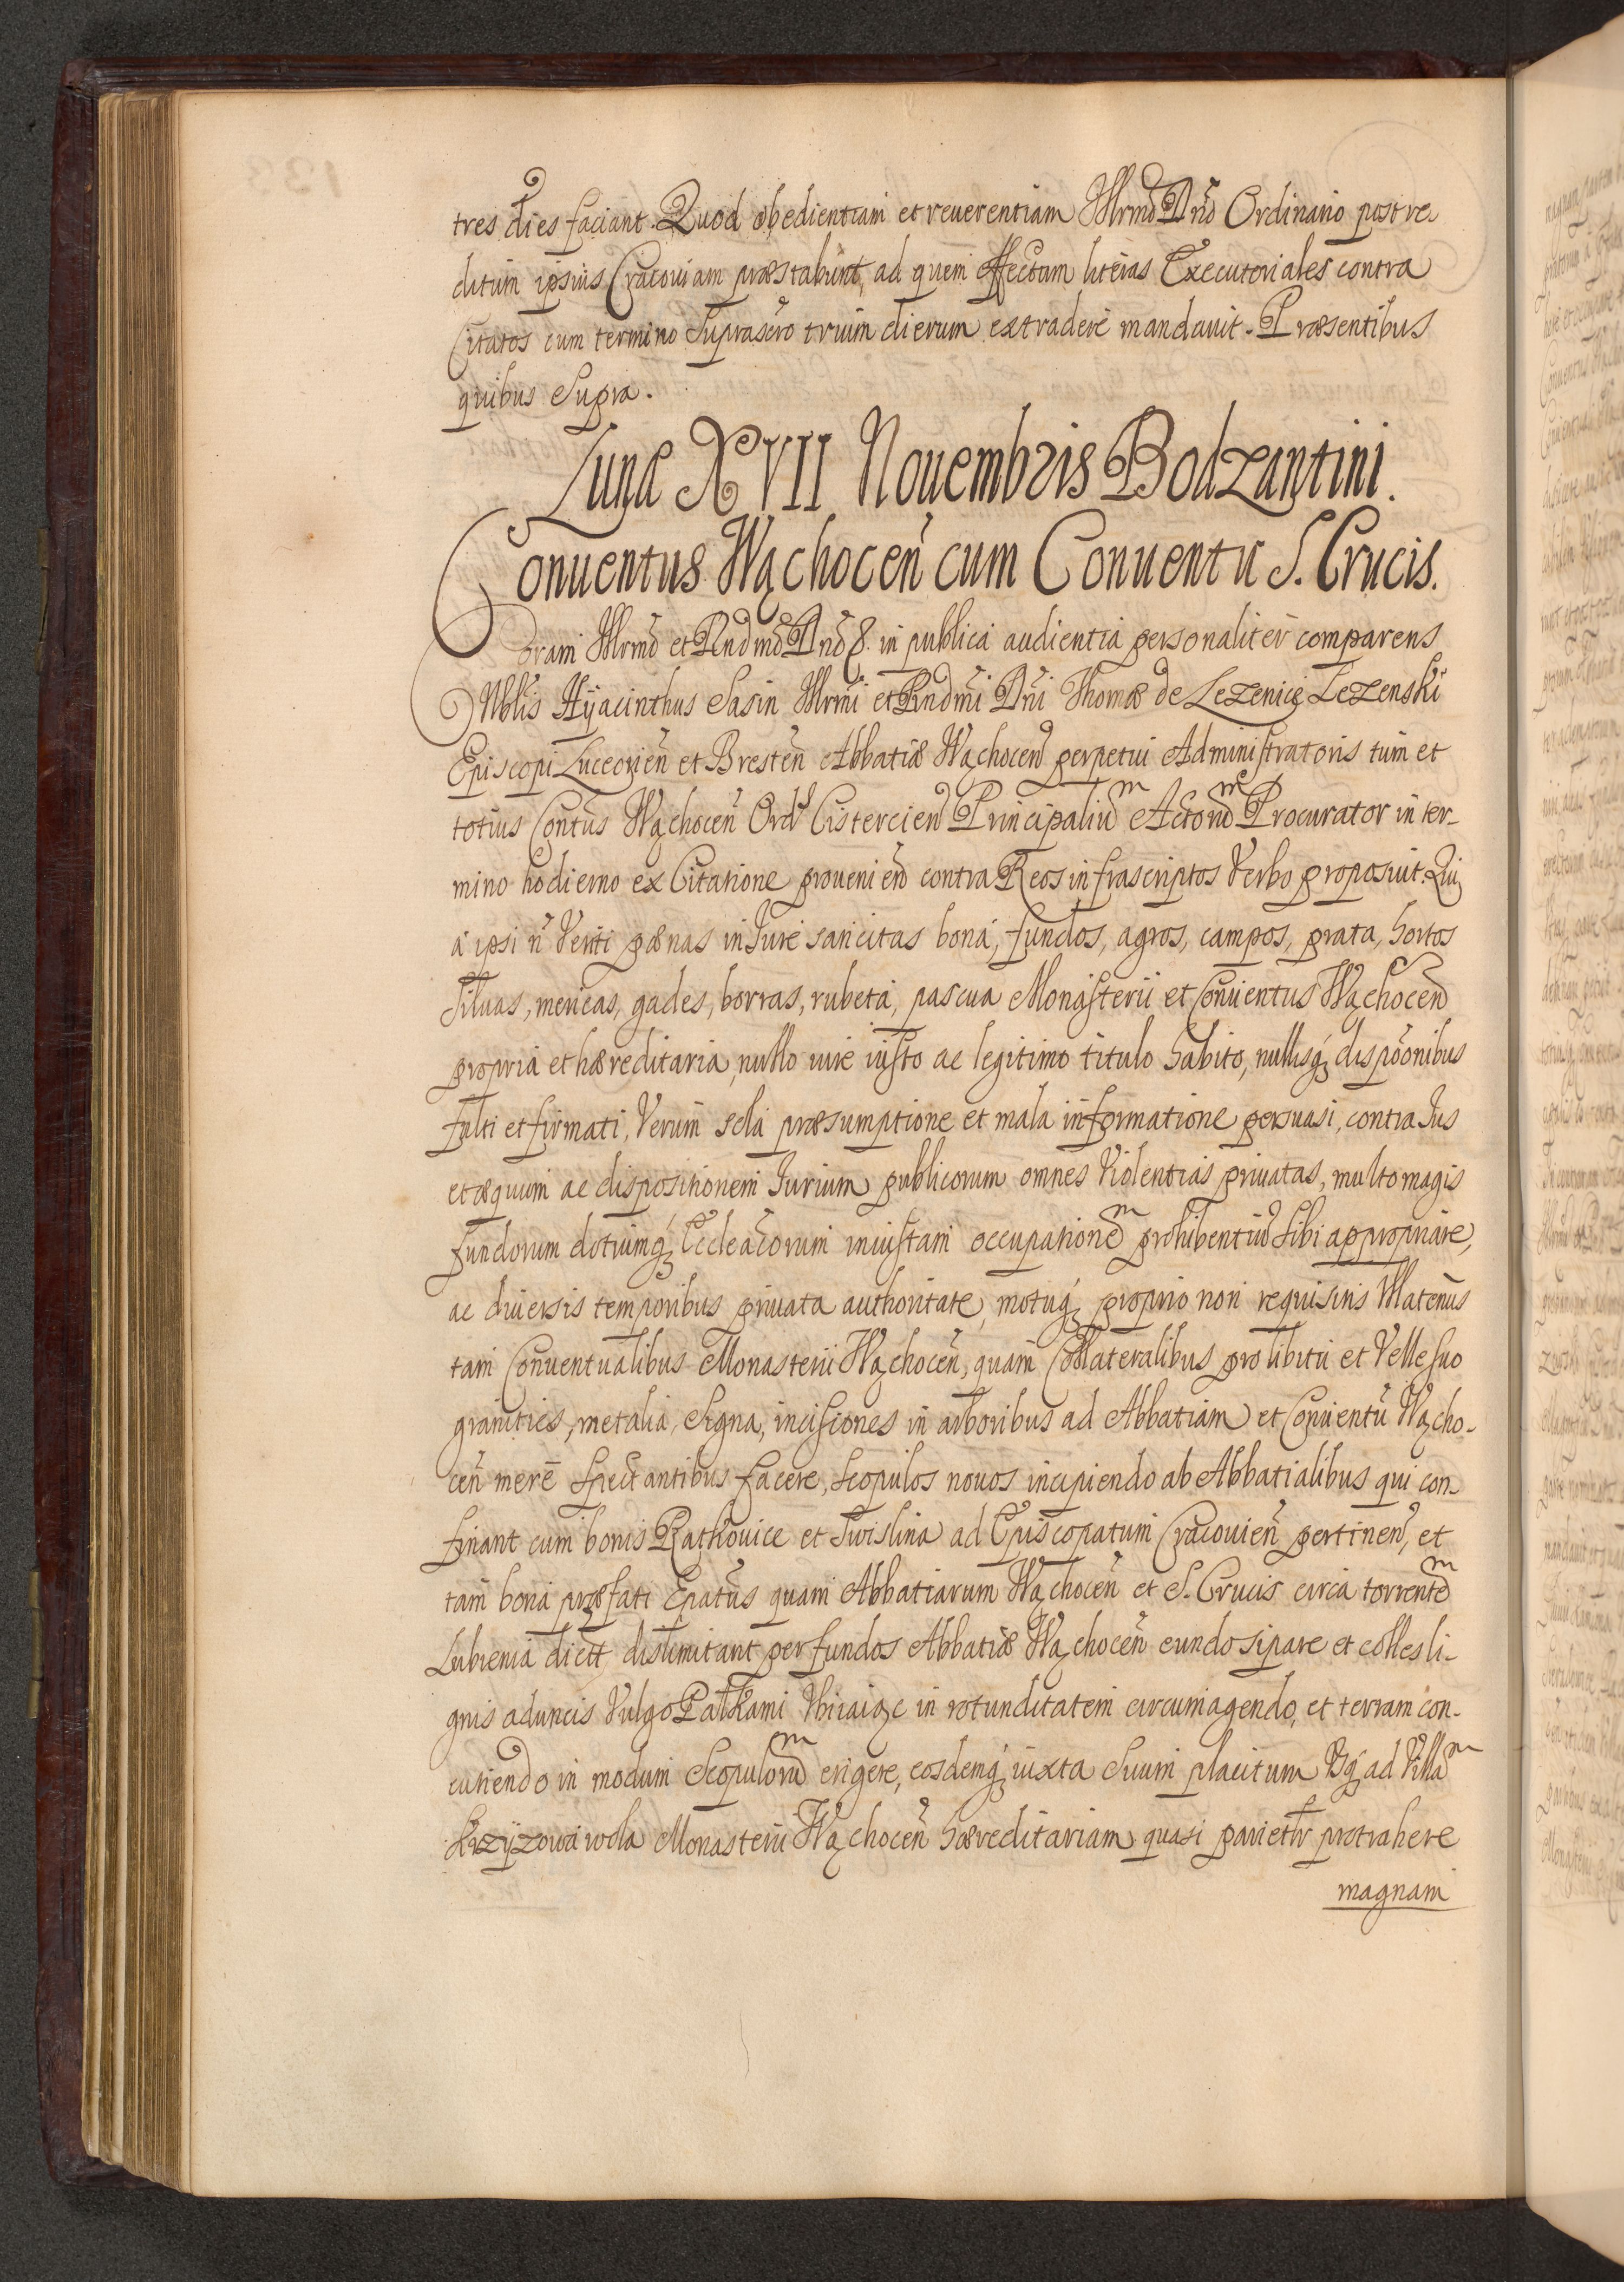 tres dies faciant. Quod obedientiam et reuerentiam Illrmo Dno Ordinario post re
ditum ipsius Cracouiam præstabunt, ad quem effectum literas Executoriales contra
Citatos cum termino Suprascro trium dierum extradere mandauit. Præsentibus
quibus Supra.
Lunæ XVII Nouembris Bodzantini.
Conuentus Wąchoceñ cum Conuentu S. Crucis.
Coram Illrmo et Rndmo Dno &. in publica audientia personaliter comparens
Nblis Hÿacinthus Sasin Illrmi et Rndmi Dni Thomæ de Lezenicę Lezenski
Episcopi Luceorieñ et Bresteñ Abbatiæ Wąchoceñ perpetui Administratoris tum et
totius Contus Wąchoceñ Ord Cistercieñ Principaliũ Actorũ Procurator in ter-
mino hodierno ex Citatione prouenieñ contra Reos infrascriptos Verbo proposuit. Quia
ipsi ñ Veriti pænas in Jure sancitas bona, fundos, agros, campos, prata, hortos
Siluas, mericas, gades, borras, rubeta, pascua Monasterii et Conuentus Wąchoceñ
propria et hæreditaria, nullo iure iusto ac legitimo titulo habito, nullisq; dispõonibus
fulti et firmati, Verum sola præsumptione et mala informatione persuasi, contra Jus
et æquum ac dispositionem Jurium publicorum omnes Violentias priuatas, multo magis
fundorum dotiumq; Eccleacorum iniustam occupationẽ prohibentiũ Sibi appropriare,
ac diuersis temporibus priuata authoritate, motuq; proprio non requisitis
tam Conuentualibus Monasterii Wąchoceñ, quam Collateralibus pro libitu et Velle suo
granities, metalia, Signa, incisiones in arboribus ad Abbatiam et Conuentũ Wącho-
ceñ mere Spectantibus facere, Scopulos nouos incipiendo ab Abbatialibus qui con-
finant cum bonis Rathouice et Swislina ad Episcopatum Cracouieñ pertineñ, et
tam bona præfati Epatus quam Abbatiarum Wąchoceñ et S. Crucis circa torrentẽ
Lubienia dictt dislimitant per fundos Abbatiæ Wąchoceñ eundo sipare et colles li-
gnis aduncis Vulgo Palkami in rotunditatem circumagendo, et terram con-
cutiendo in modum Scopulorũ erigere, eosdemq; iuxta Suum placitum Vsq; ad Villã
Krzÿzowa wola Monasterii Wąchoceñ hæreditariam quasi parietr protrahere
magnam